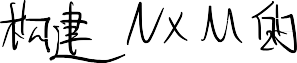 构建 N×M 的